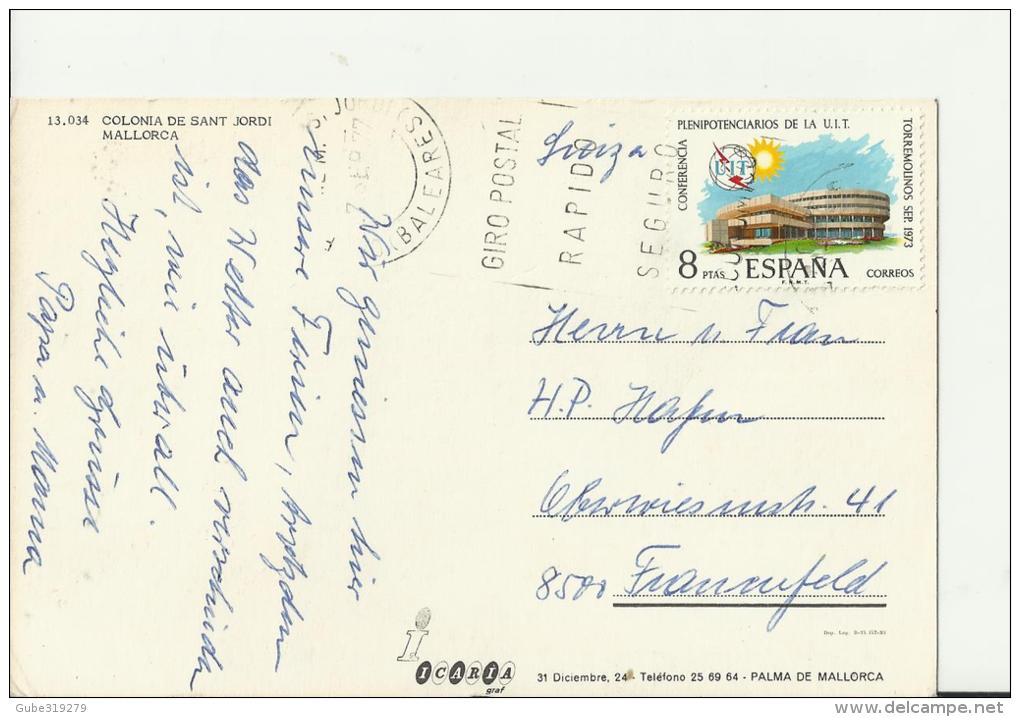 13.034 COLONIA DE SANT JORDI
MALLORCA
(BALEARES)
GIRO POSTAL
RAPIDO
SEGURO
Suiza
CONFERENCIA
PLENIPOTENCIARIOS DE LA U.I.T.
TORREMOLINOS SEP. 1973
UIT
8 PTAS ESPAÑA CORREOS
F.N.M.T.
Wir geniessen hier
unsere Ferien, trotzdem
das Wetter auch verschieden
ist, wie überall.
Herzliche Grüsse
Papa u. Mama
Herrn u Frau
H.P. Hafen
Oberwiesenstr. 41
8500 Frauenfeld
i
ICARIA
graf
31 Diciembre, 24 - Teléfono 25 69 64 - PALMA DE MALLORCA
Gube319279
delcampe.net